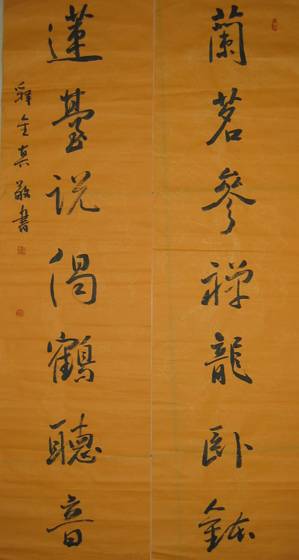 蘭茗參禪龍卧鉢
蓮臺説偈鶴聽音
釋全真敬書